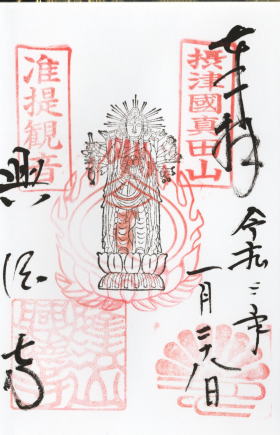 奉拝
摂津國真田山
令和三年
一月二十八日
准提観音
興徳寺